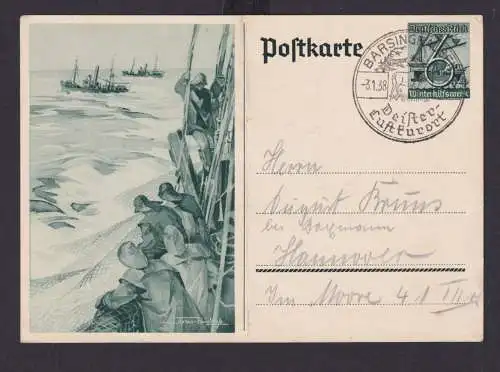 Postkarte
Deutsches Reich
6
Winterhilfswerk
BARSINGHAUSEN
-3.1.38
Deister-
Luftkurort
Herrn
August Bruns
bei
Hannover
Im Moore 41 III